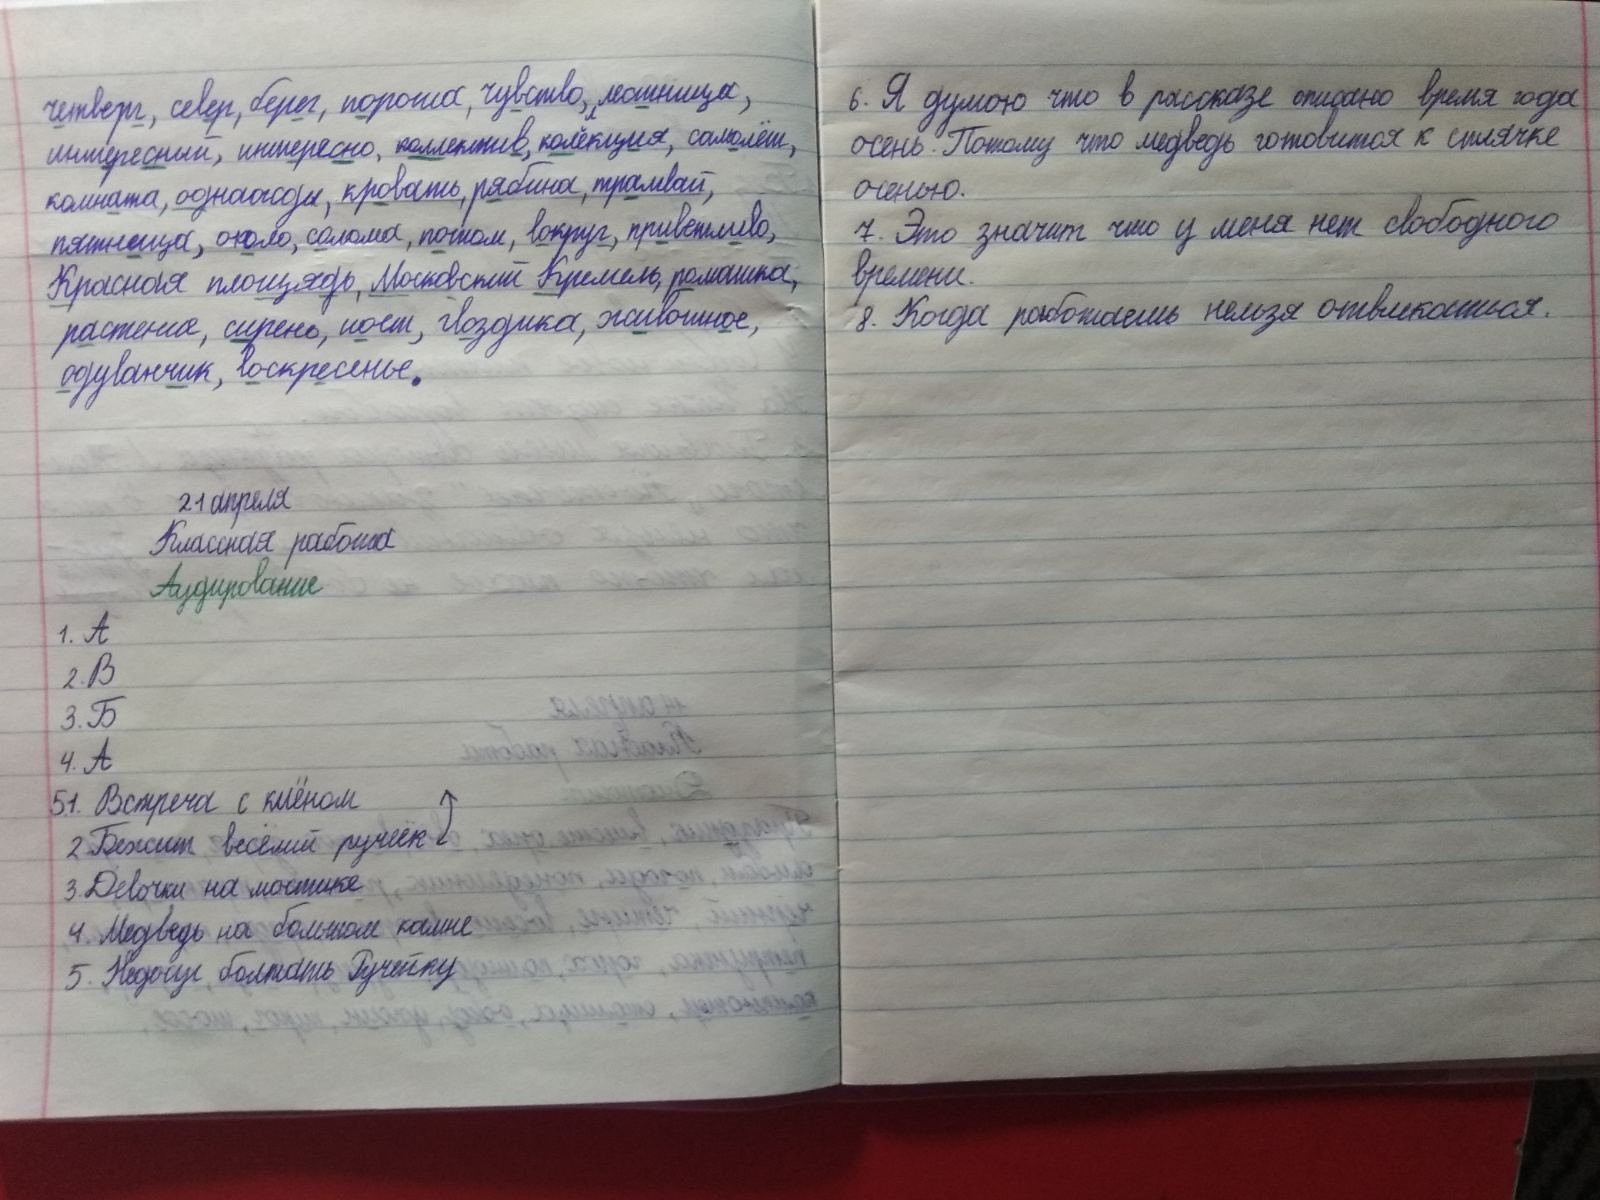 четверг, север, берег, пороша, чувство, лестница,
интересный, интересно, коллектив, колекция, самолёт,
комната, однажды, кровать, рябина, трамвай,
пятница, около, солома, потом, вокруг, приветливо,
Красная площядь, Московский Кремель, ромашка,
растение, сирень, пост, гвоздика, животное,
одуванчик, воскресенье.
21 апреля
Классная работа
Аудирование
1. А
2. В
3. Б
4. А
5 1. Встреча с клёном
2 Бежит весёлий ручеёк
3. Девочки на мостике
4. Медведь на большом камне
5. Недосуг болтать Ручейку
6. Я думою что в рассказе описано время года
осень. Потому что медведь готовится к спячке
осенью.
7. Это значит что у меня нет свободного
времени.
8. Когда работаешь нельзя отвлекаться.